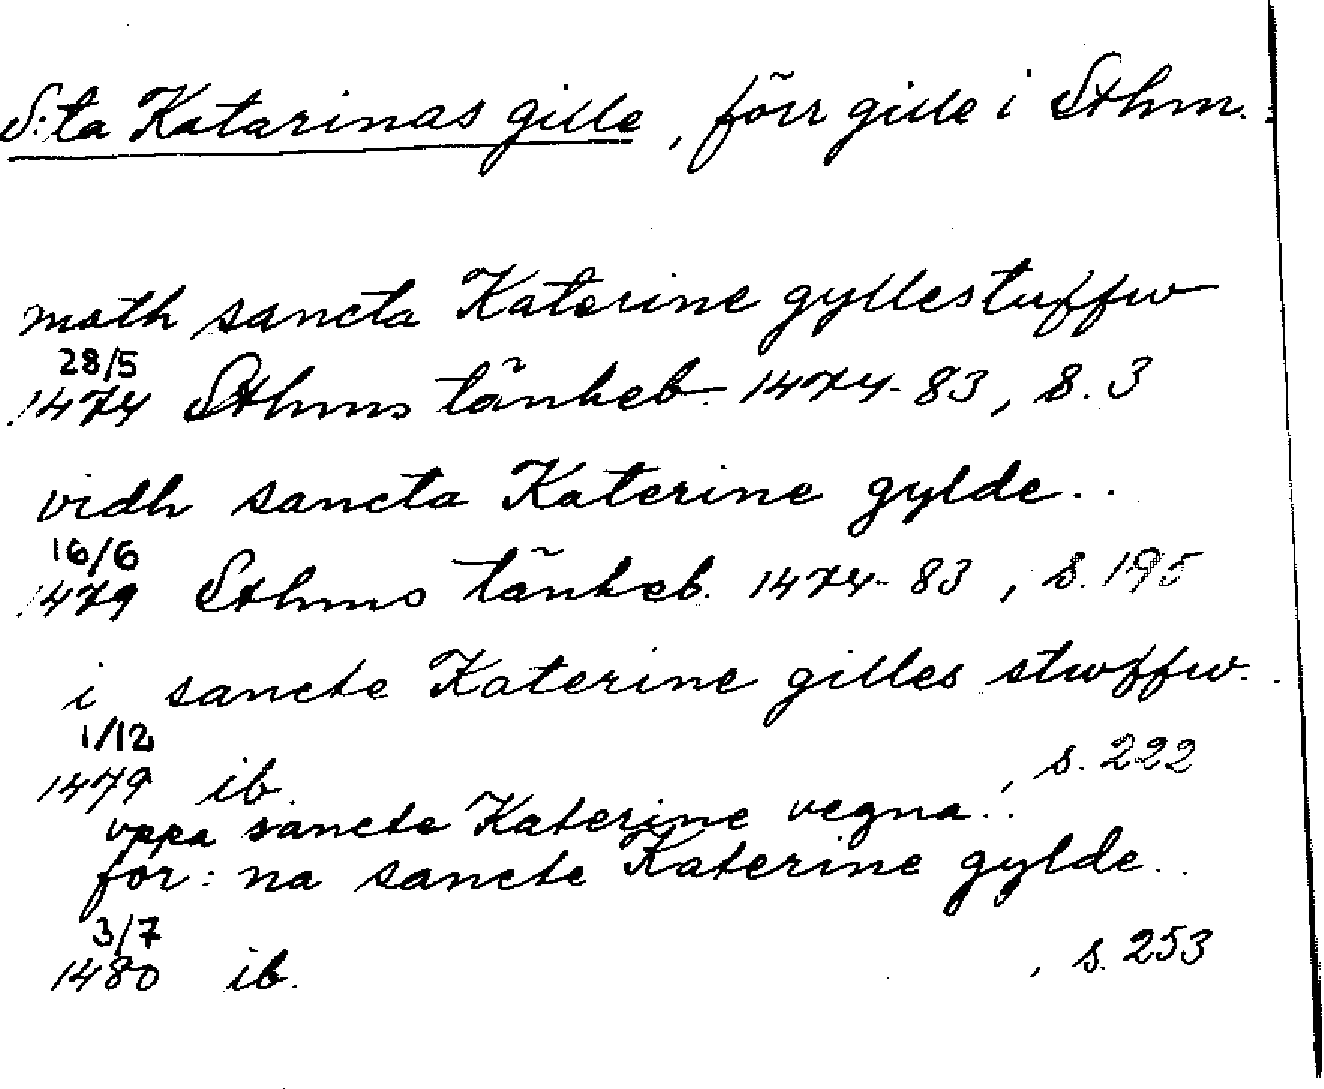 S:ta Katarinas gille, förr gille i Sthm.
moth sancta Katerine gyllestuffw
28/5
1474 Sthms tänkeb. 1474-83, s. 3
vidh sancta Katerine gylde..
16/6
1479 Sthms tänkeb. 1474-83, s. 195
i sancte Katerine gilles stwffw..
1/12
1479 ib. , s. 222
vppa sancte Katerine vegna..
for:na sancte Katerine gylde..
3/7
1480 ib. , s. 253